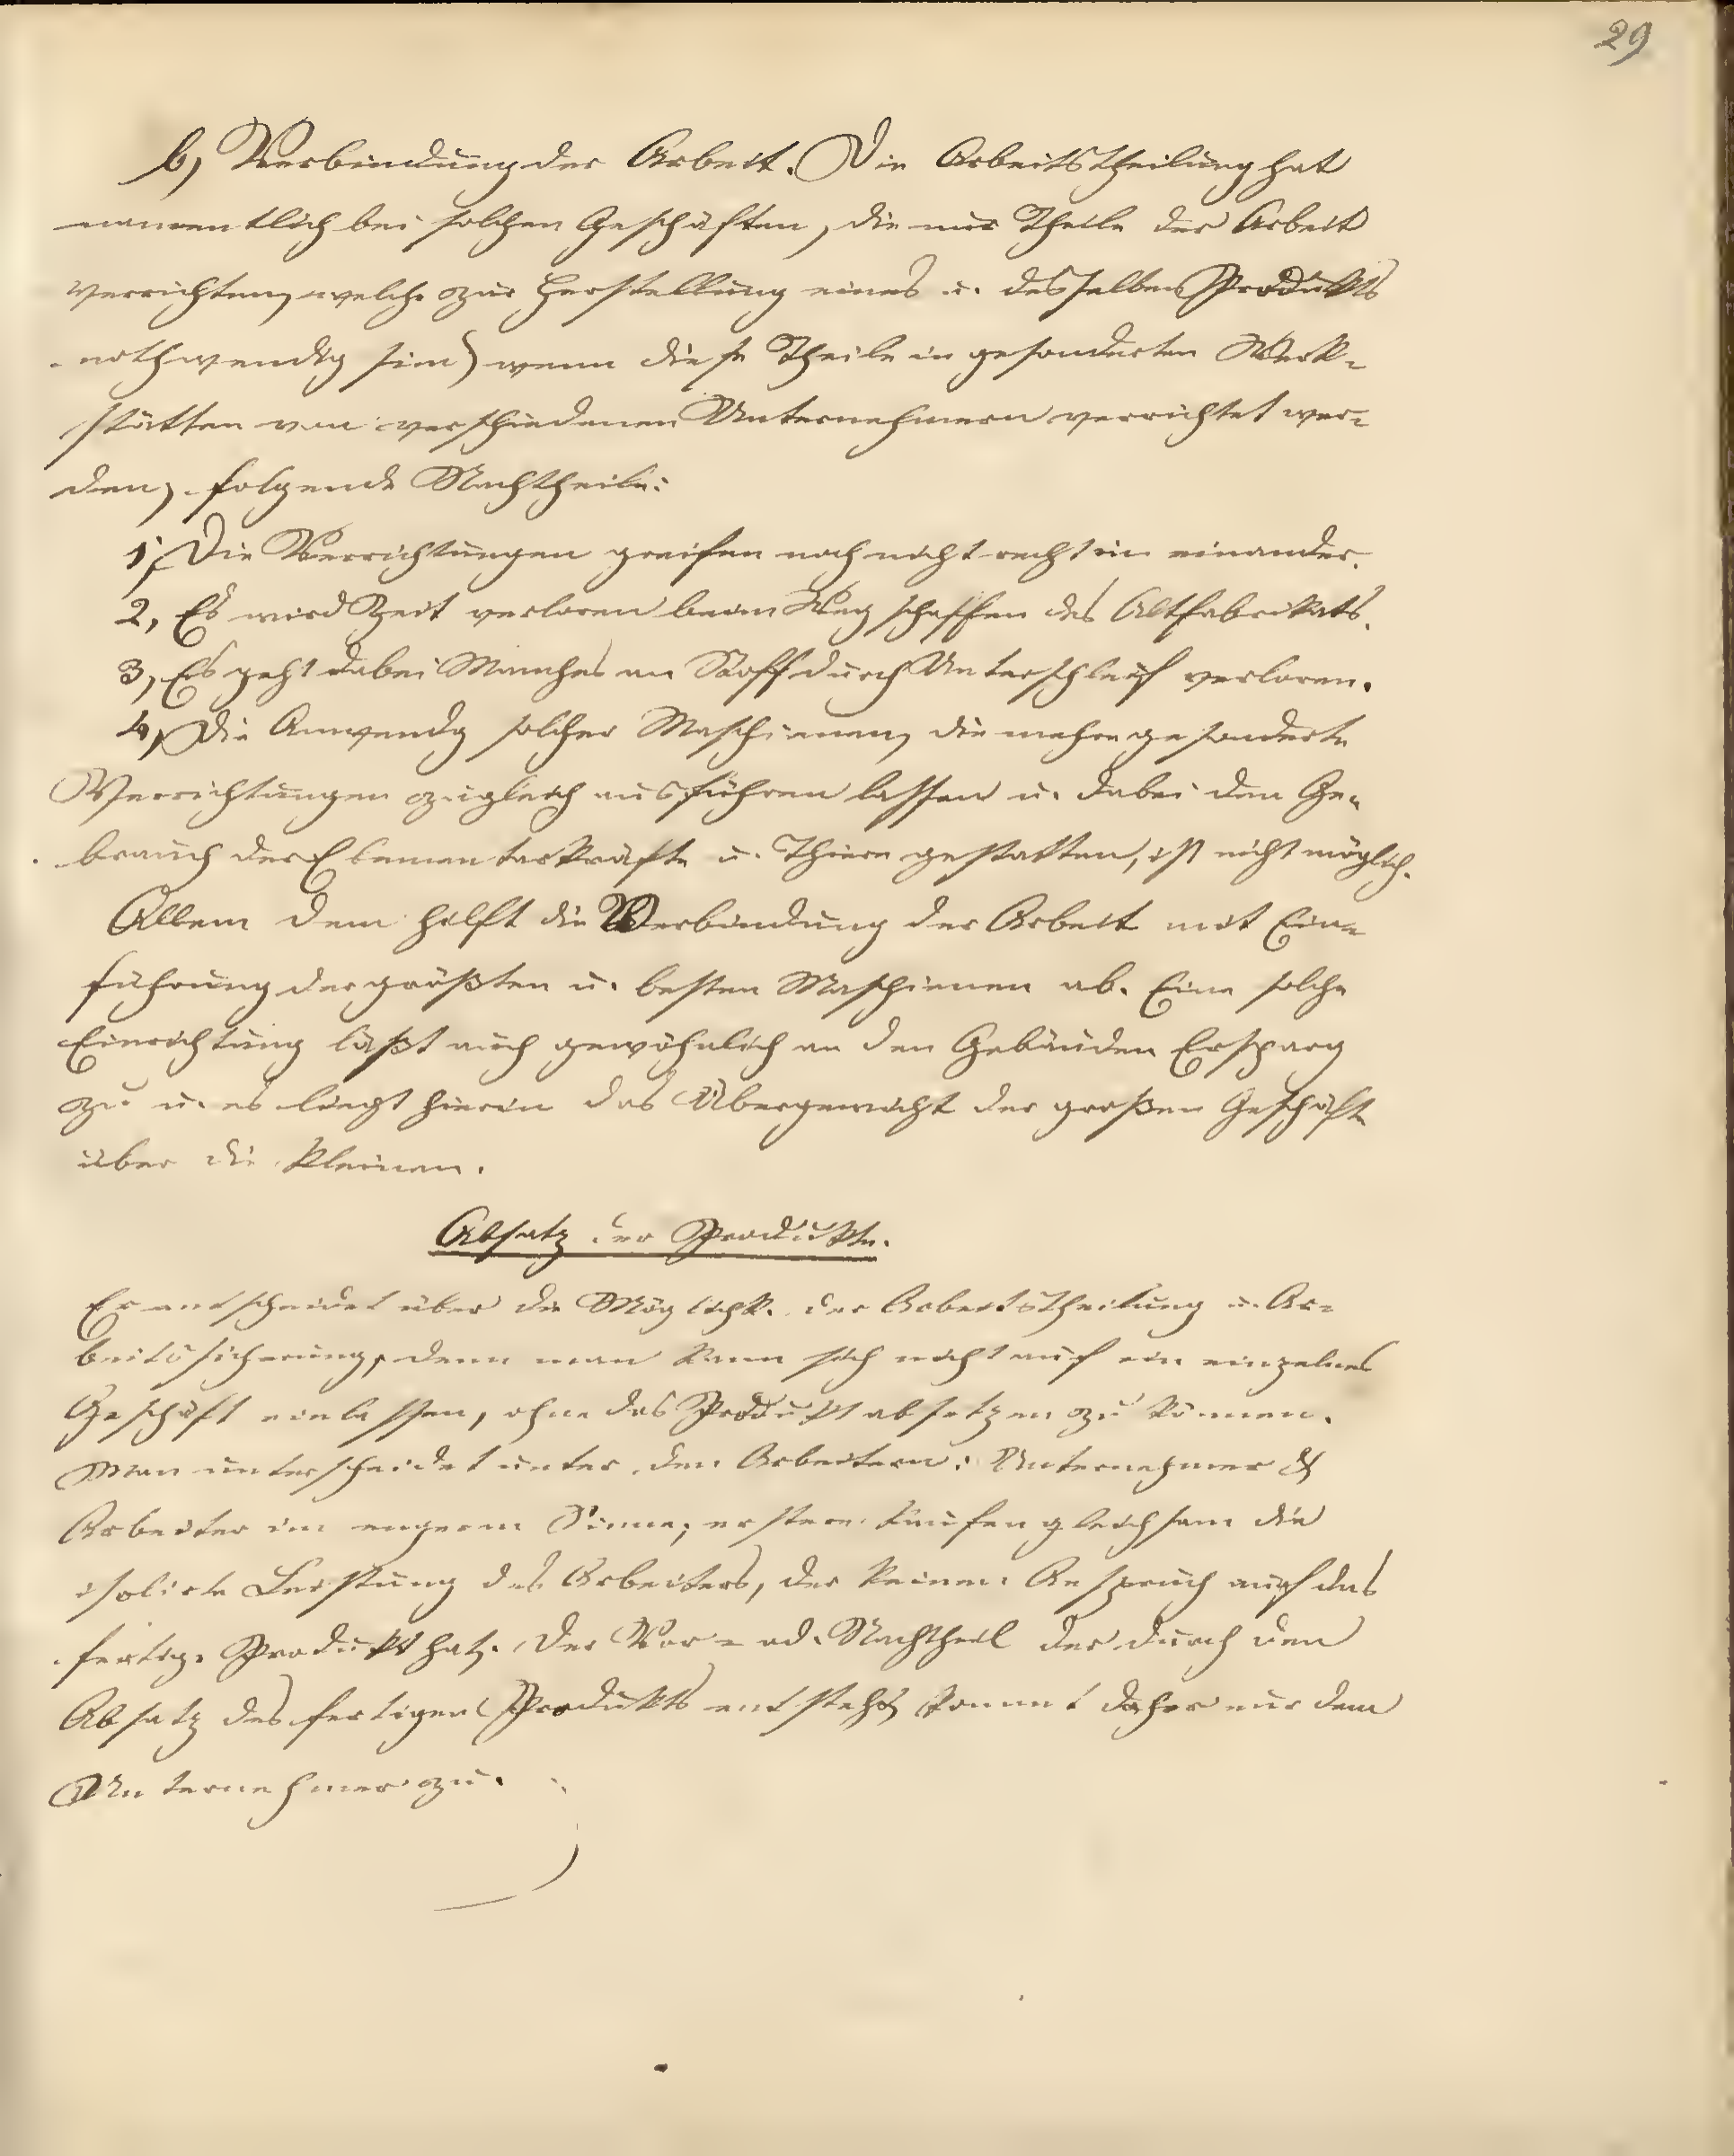 29
b, Verbindung der Arbeit. Die Arbeitstheilung hat
namentlich bei solchen Geschäften, die nur Theile der Arbeit
verrichten, welche zur Herstellung eines u. desselben Produkts
nothwendig sind, wenn diese Theile in gesonderten Werk-
stätten von verschiedenen Unternehmern verrichtet wer-
den, folgende Nachtheile:
1, Die Verrichtungen greifen noch nicht recht in einander.
2, Es wird Zeit verloren beim Wegschaffen des Altfabrikats.
3, Es geht dabei Manches an Stoff durch Unterschleif verloren.
4, Die Anwendg solcher Maschienen, die mehre gesonderte
Verrichtungen zugleich ausführen lassen u. dabei den Ge-
brauch der Elementarkräfte u. Thiere gestatten, ist nicht möglich.
Allem dem hilft die Verbindung der Arbeit mit Ein-
führung der größten u. besten Maschienen ab. Eine solche
Einrichtung läßt auch gewöhnlich an den Gebäuden Ersparg
zu u. es liegt hierin das Übergewicht der großen Geschäfte
über die kleinen.
Absatz der Produkte.
Er entscheidet über die Möglichk. der Arbeitstheilung u. Ar-
beitssicherung, denn man kann sich nicht auf ein einzelnes
Geschäft einlassen, ohne das Produkt absetzen zu können.
Man unterscheidet unter den Arbeitern: Unternehmer &
Arbeiter im engern Sinne; erstere kaufen gleichsam die
isolirte Leistung des Arbeiters, der keinen Anspruch auf das
fertige Produkt hat. Der Vor- od. Nachtheil der durch den
Absatz des fertigen Produkts entsteht, kommt daher nur dem
Unternehmer zu.